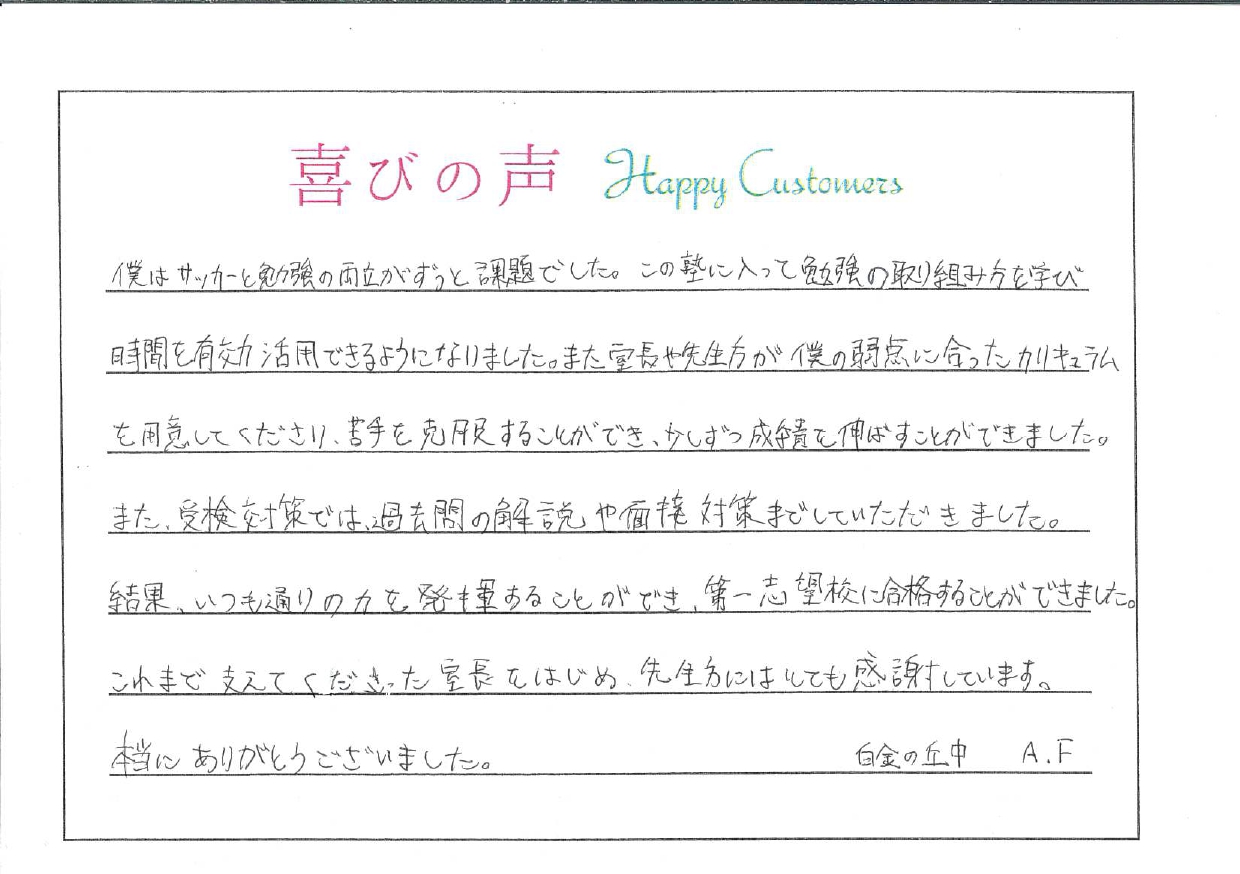 喜びの声 Happy Customers
僕はサッカーと勉強の両立がずっと課題でした。この塾に入って勉強の取り組み方を学び
時間を有効活用できるようになりました。また室長や先生方が僕の弱点に合ったカリキュラム
を用意してくださり、苦手を克服することができ、少しずつ成績を伸ばすことができました。
また、受検対策では、過去問の解説や面接対策までしていただきました。
結果、いつも通りの力を発揮することができ、第一志望校に合格することができました。
これまで支えてくださった室長をはじめ、先生方にはとても感謝しています。
本当にありがとうございました。 白金の丘中 A.F